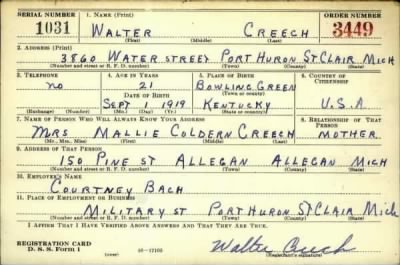 SERIAL NUMBER 1. NAME (Print) ORDER NUMBER
1031 WALTER CREECH 3449
(First) (Middle) (Last)
2. ADDRESS (Print)
3860 WATER STREET PORT HURON ST CLAIR MICH
(Number and street or R. F. D. number) (Town) (County) (State)
3. TELEPHONE 4. AGE IN YEARS 5. PLACE OF BIRTH 6. COUNTRY OF CITIZENSHIP
no 21 BOWLING GREEN
DATE OF BIRTH (Town or county)
SEPT 1 1919 KENTUCKY U.S.A
(Exchange) (Number) (Mo.) (Day) (Yr.) (State or country)
7. NAME OF PERSON WHO WILL ALWAYS KNOW YOUR ADDRESS 8. RELATIONSHIP OF THAT PERSON
MRS MALLIE COLDERN CREECH MOTHER
(Mr., Mrs., Miss) (First) (Middle) (Last)
9. ADDRESS OF THAT PERSON
150 PINE ST ALLEGAN ALLEGAN MICH
(Number and street or R. F. D. number) (Town) (County) (State)
10. EMPLOYER'S NAME
COURTNEY BACH
11. PLACE OF EMPLOYMENT OR BUSINESS
MILITARY ST PORT HURON ST CLAIR Mich
(Number and street or R. F. D. number) (Town) (County) (State)
I AFFIRM THAT I HAVE VERIFIED ABOVE ANSWERS AND THAT THEY ARE TRUE.
REGISTRATION CARD
D. S. S. Form 1 (over) 16-17105 Walter Creech
(Registrant's signature)